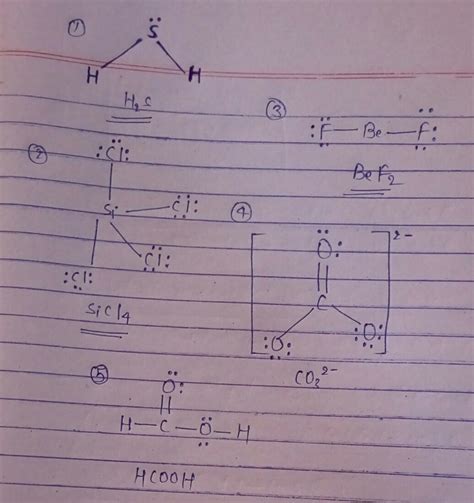 ①
S̈
H H
H₂S
③
:F̤̈ — Be — F̤̈:
BeF₂
②
:C̈l:
Si
C̤̈l:
C̤̈l:
:C̤̈l:
SiCl₄
④
Ö:
C
:Ö: Ö:
2-
CO₃²⁻
⑤
Ö:
H — C — Ö — H
HCOOH